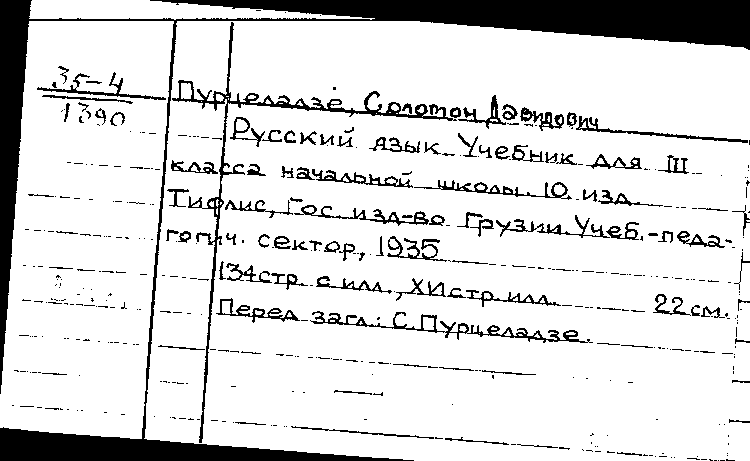 35-4
1390
Пурцеладзе, Соломон Давидович
Русский язык. Учебник для III
класса начальной школы. 10. изд.
Тифлис, Гос. изд-во Грузии. Учеб.-педа-
гогич. сектор, 1935
134стр. с илл., XIстр. илл. 22 см.
Перед загл.: С. Пурцеладзе.